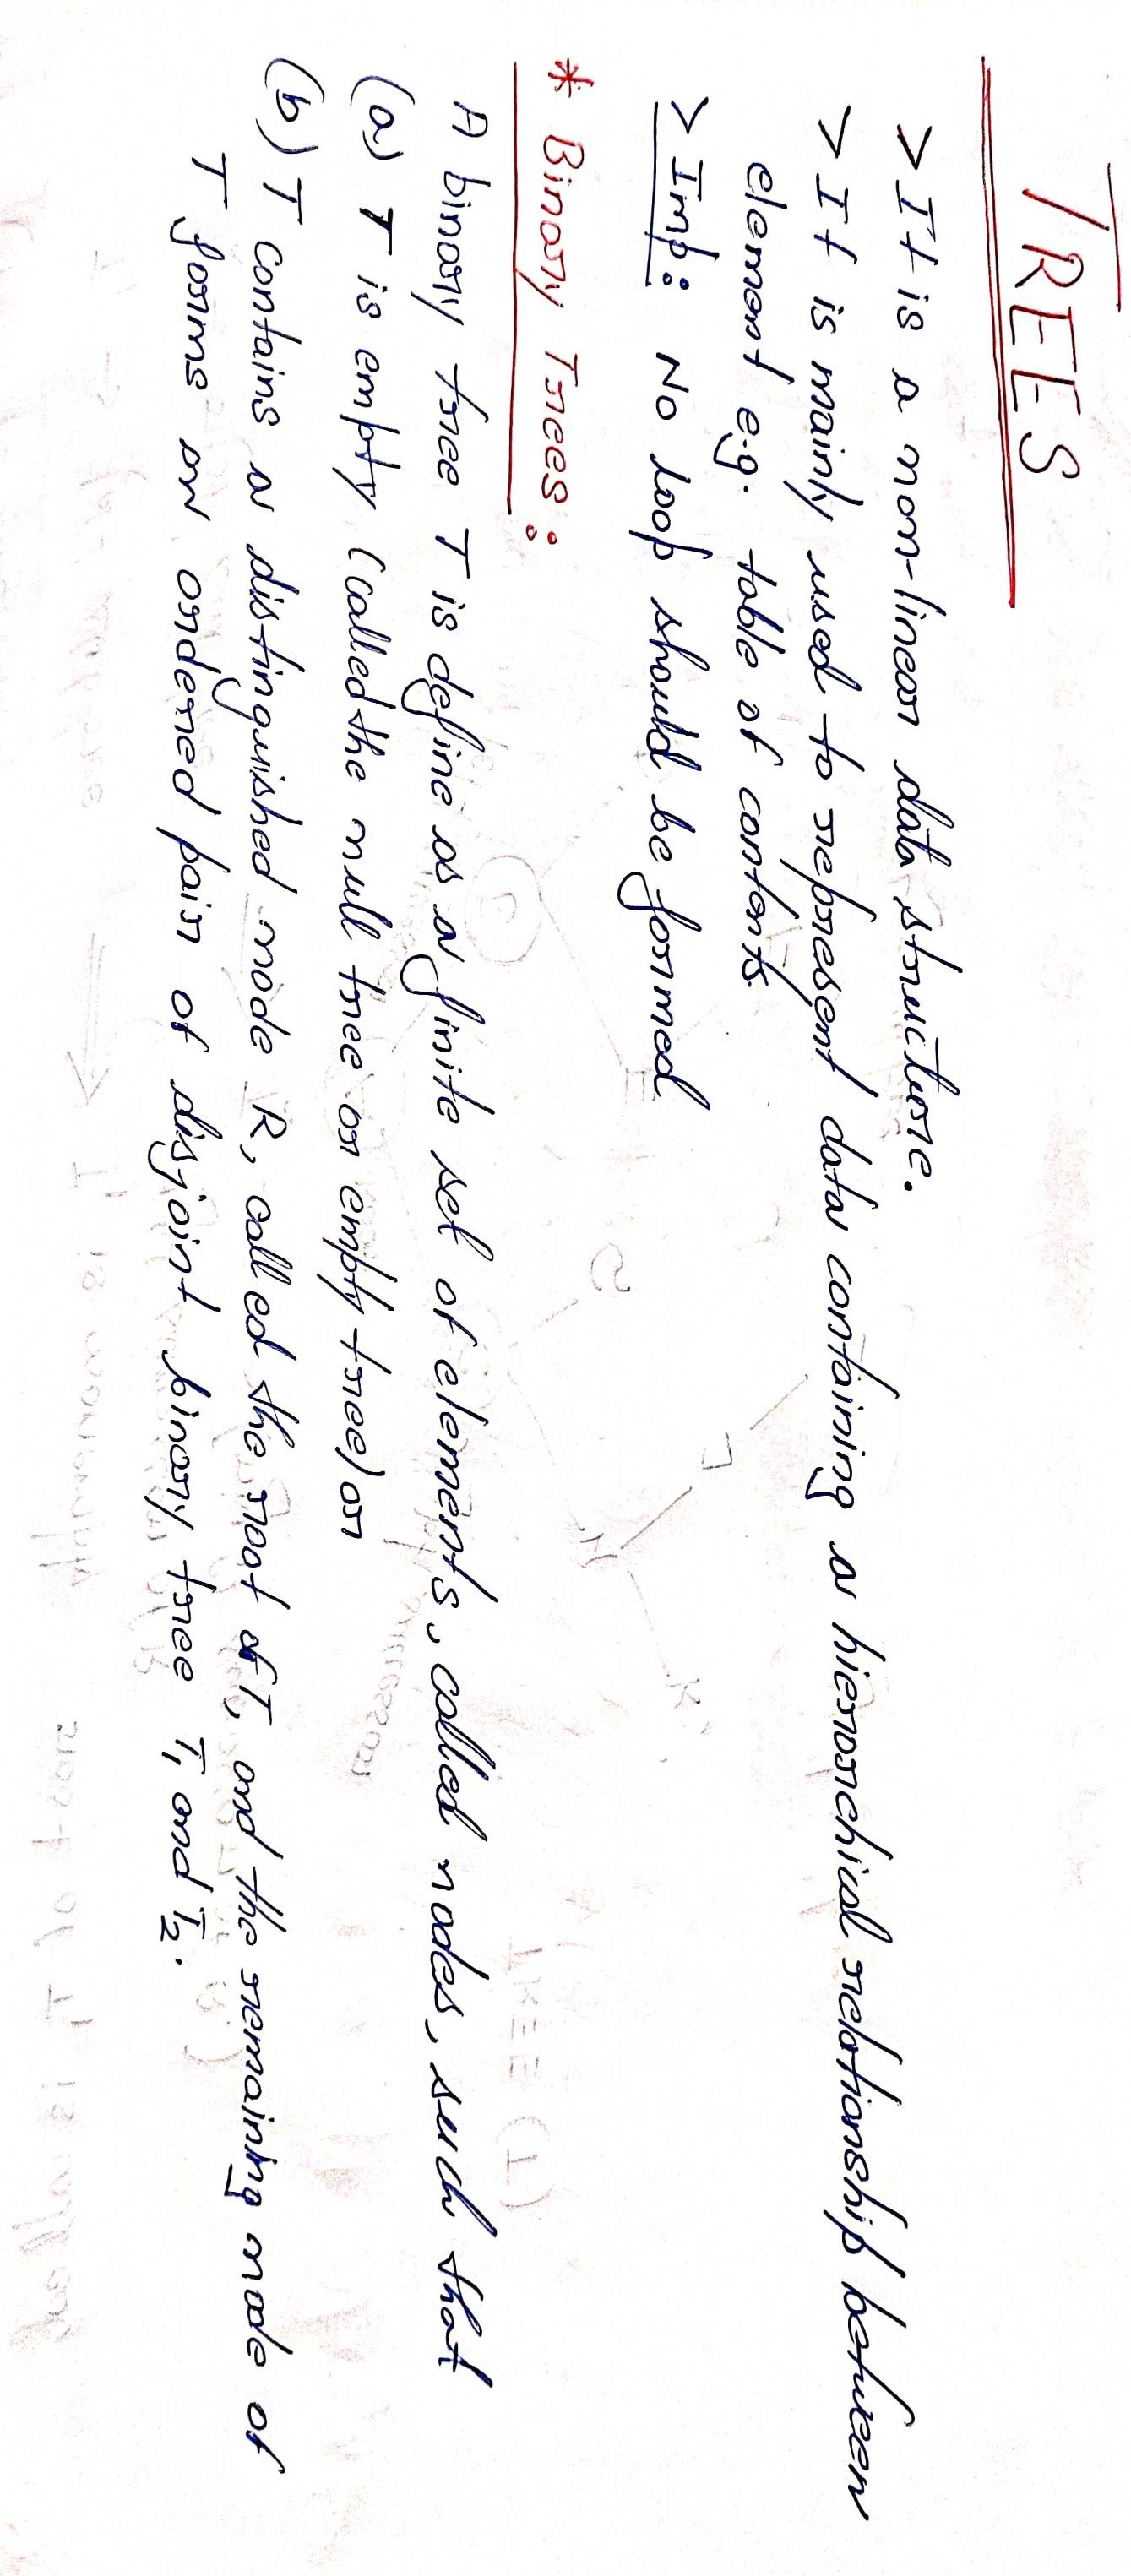 TREES
> It is a non-linear data structure.
> It is mainly used to represent data containing a hierarchical relationship between
element e.g. table of contents.
> Imp: No loop should be formed
* Binary Trees:
A binary tree T is define as a finite set of elements, called nodes, such that
(a) T is empty (called the null tree or empty tree) or
(b) T contains a distinguished node R, called the root of T, and the remaining node of
T forms an ordered pair of disjoint binary tree T1 and T2.